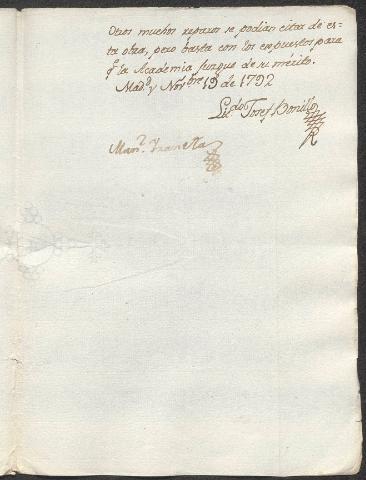 Otros muchos reparos se podían citar de es-
ta obra, pero basta con los expuestos para
q.e la Academia juzgue de su mérito.
Mad.d y Nov.bre 19 de 1792
Lic.do Josef Bonill
Man.l